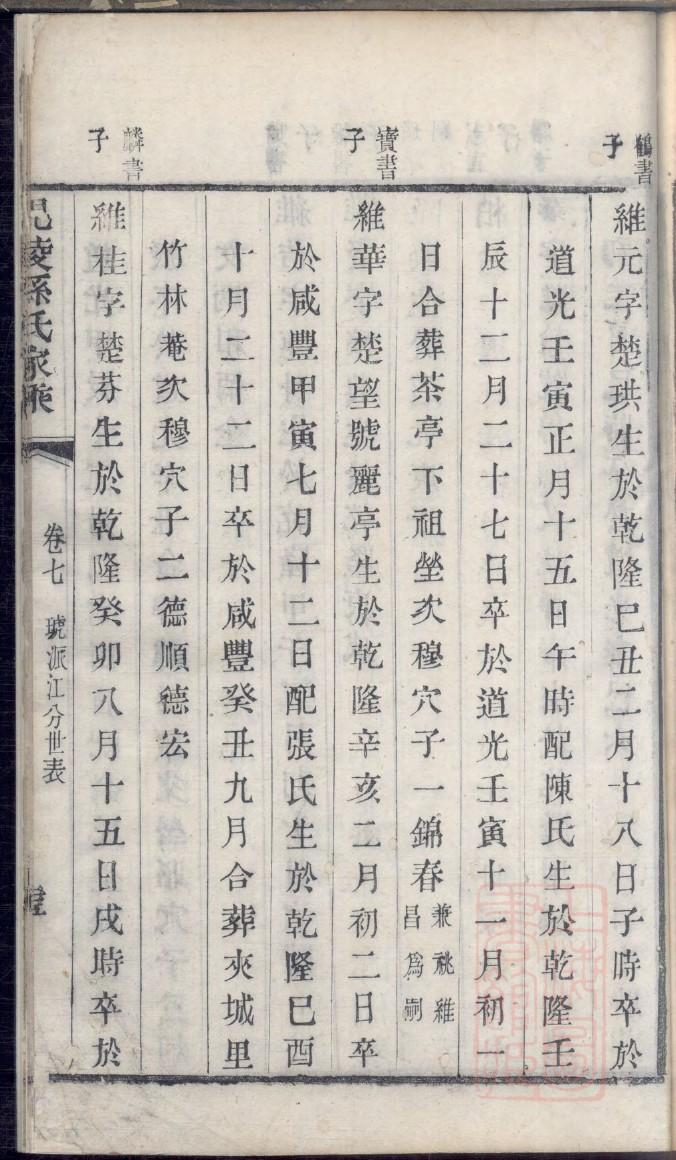 鶴書子
維元字楚珙生於乾隆巳丑二月十八日子時卒於
道光壬寅正月十五日午時配陳氏生於乾隆壬
辰十二月二十七日卒於道光壬寅十一月初一
日合葬茶亭下祖塋次穆穴子一錦春兼祧維昌為嗣
寶書子
維華字楚望號麗亭生於乾隆辛亥二月初二日卒
於咸豐甲寅七月十二日配張氏生於乾隆巳酉
十月二十二日卒於咸豐癸丑九月合葬夾城里
竹林菴次穆穴子二德順德宏
麟書子
維桂字楚芬生於乾隆癸卯八月十五日戌時卒於
毘陵孫氏家乘
卷七 琥派江分世表